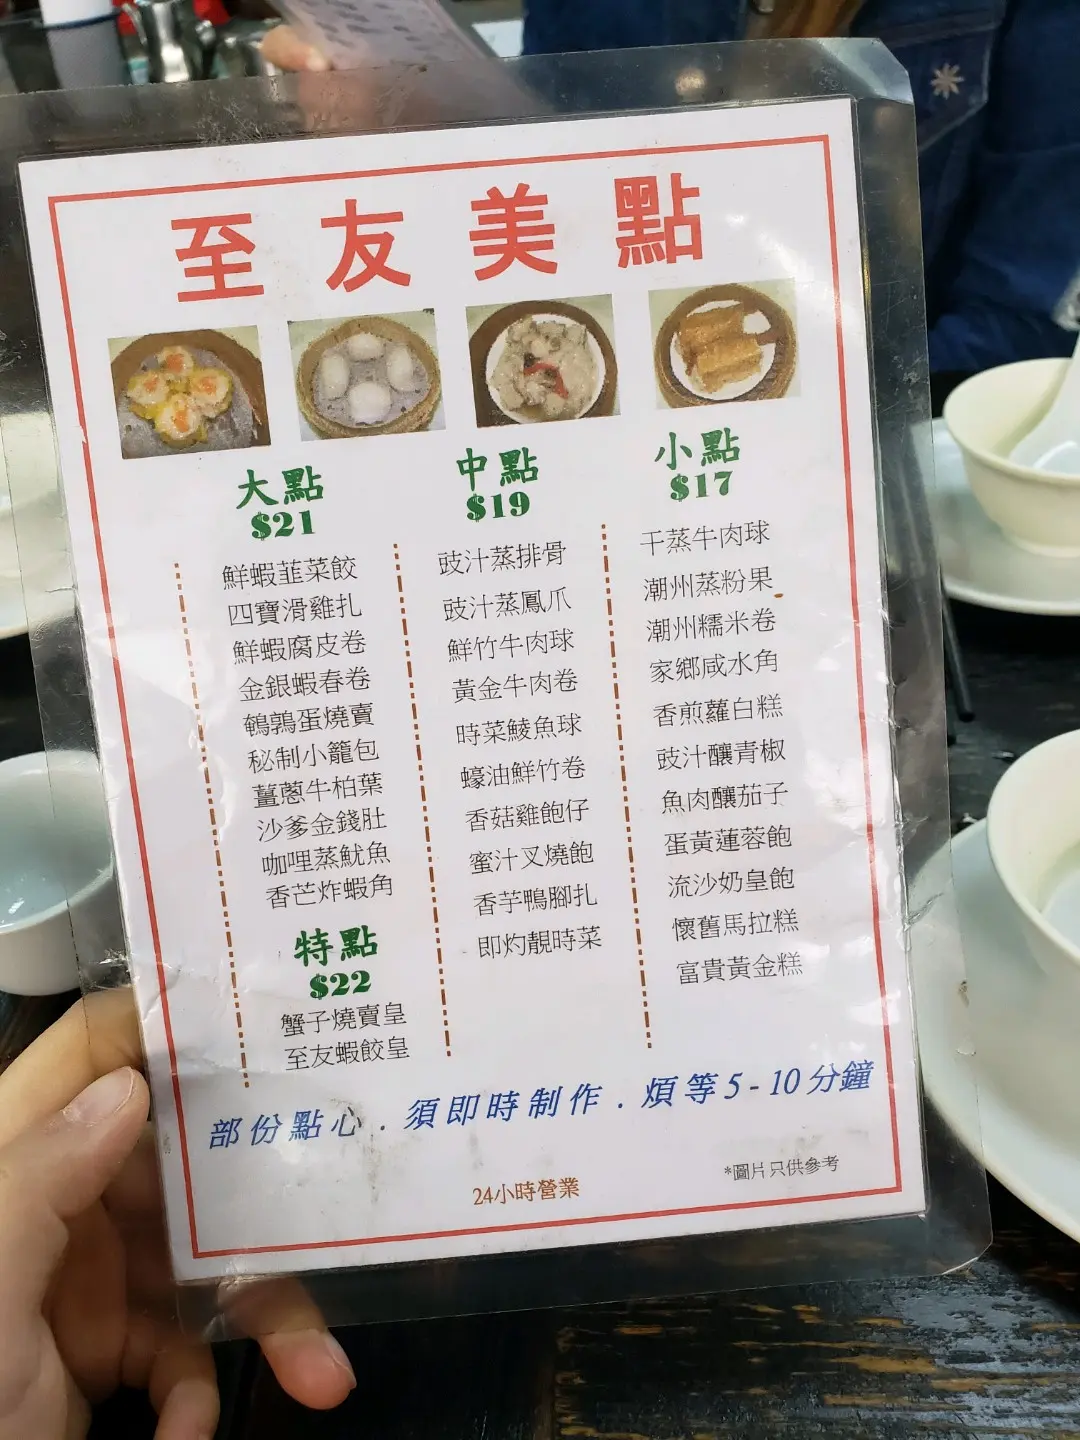 至友美點
大點
$21
鮮蝦韮菜餃
四寶滑雞扎
鮮蝦腐皮卷
金銀蝦春卷
鵪鶉蛋燒賣
秘制小籠包
薑蔥牛柏葉
沙爹金錢肚
咖哩蒸魷魚
香芒炸蝦角
特點
$22
蟹子燒賣皇
至友蝦餃皇
中點
$19
豉汁蒸排骨
豉汁蒸鳳爪
鮮竹牛肉球
黃金牛肉卷
時菜鯪魚球
蠔油鮮竹卷
香菇雞飽仔
蜜汁叉燒飽
香芋鴨腳扎
即灼靚時菜
小點
$17
干蒸牛肉球
潮州蒸粉果
潮州糯米卷
家鄉咸水角
香煎蘿白糕
豉汁釀青椒
魚肉釀茄子
蛋黃蓮蓉飽
流沙奶皇飽
懷舊馬拉糕
富貴黃金糕
部份點心．須即時制作．煩等5-10分鐘
*圖片只供參考
24小時營業